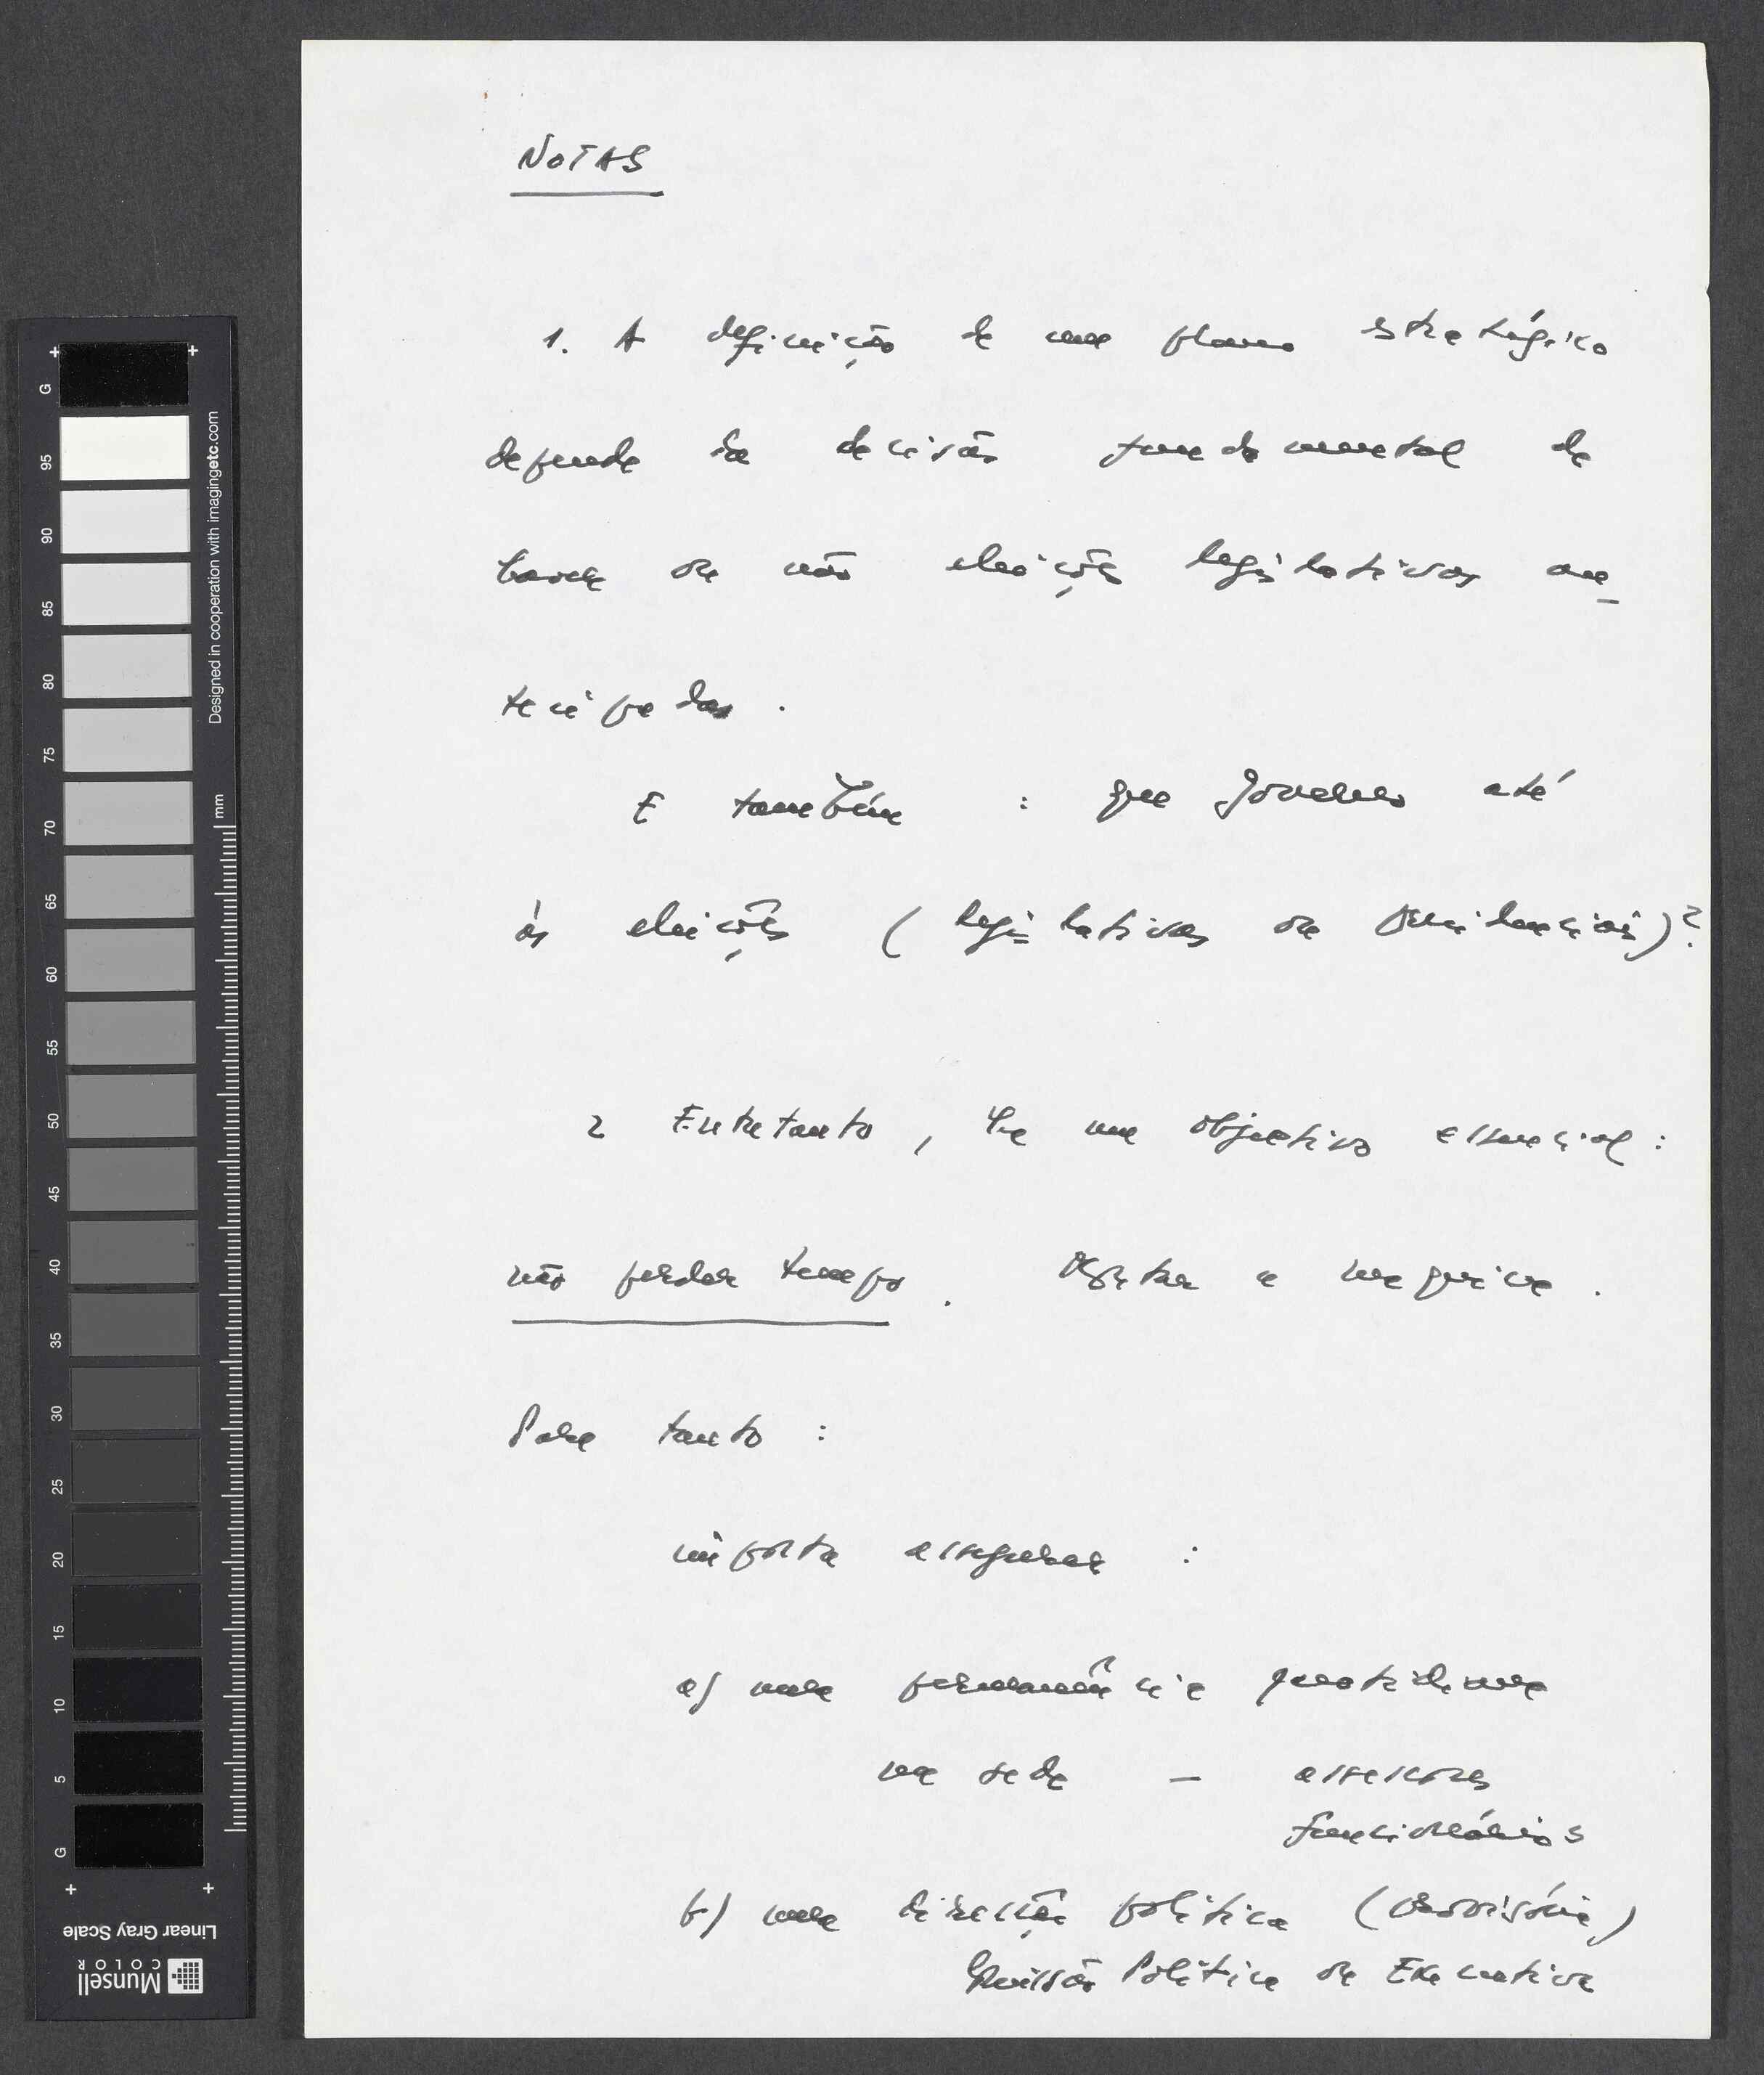 NOTAS
1. A definição de um plano estratégico
depende da decisão fundamental de
haver ou não eleições legislativas an-
tecipadas.
E também : que Governo até
às eleições (legislativas ou Presidenciais)?
2 Entretanto, há um objectivo essencial :
não perder tempo. Oj a máquina.
Para tanto :
importa assegurar :
a) uma permanência quotidiana
na sede — assessores
funcionários
b) uma direcção política (provisória)
Comissão Política ou Executiva
G 95 90 85 80 75 70 65 60 55 50 45 40 35 30 25 20 15 10 5 G
Designed in cooperation with imagingetc.com
mm
Linear Gray Scale
Munsell
COLOR